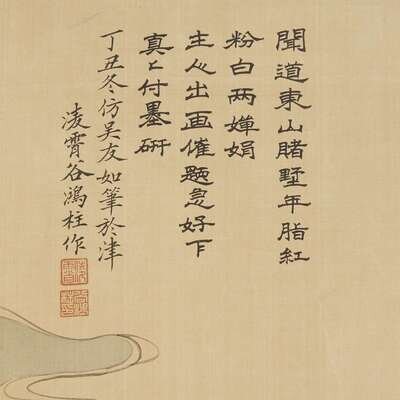 聞道東山賭墅年脂紅
粉白两嬋娟
主人出画催题急好下
真真付墨研
丁丑冬仿吴友如筆於津
淩霄谷鴻柱作